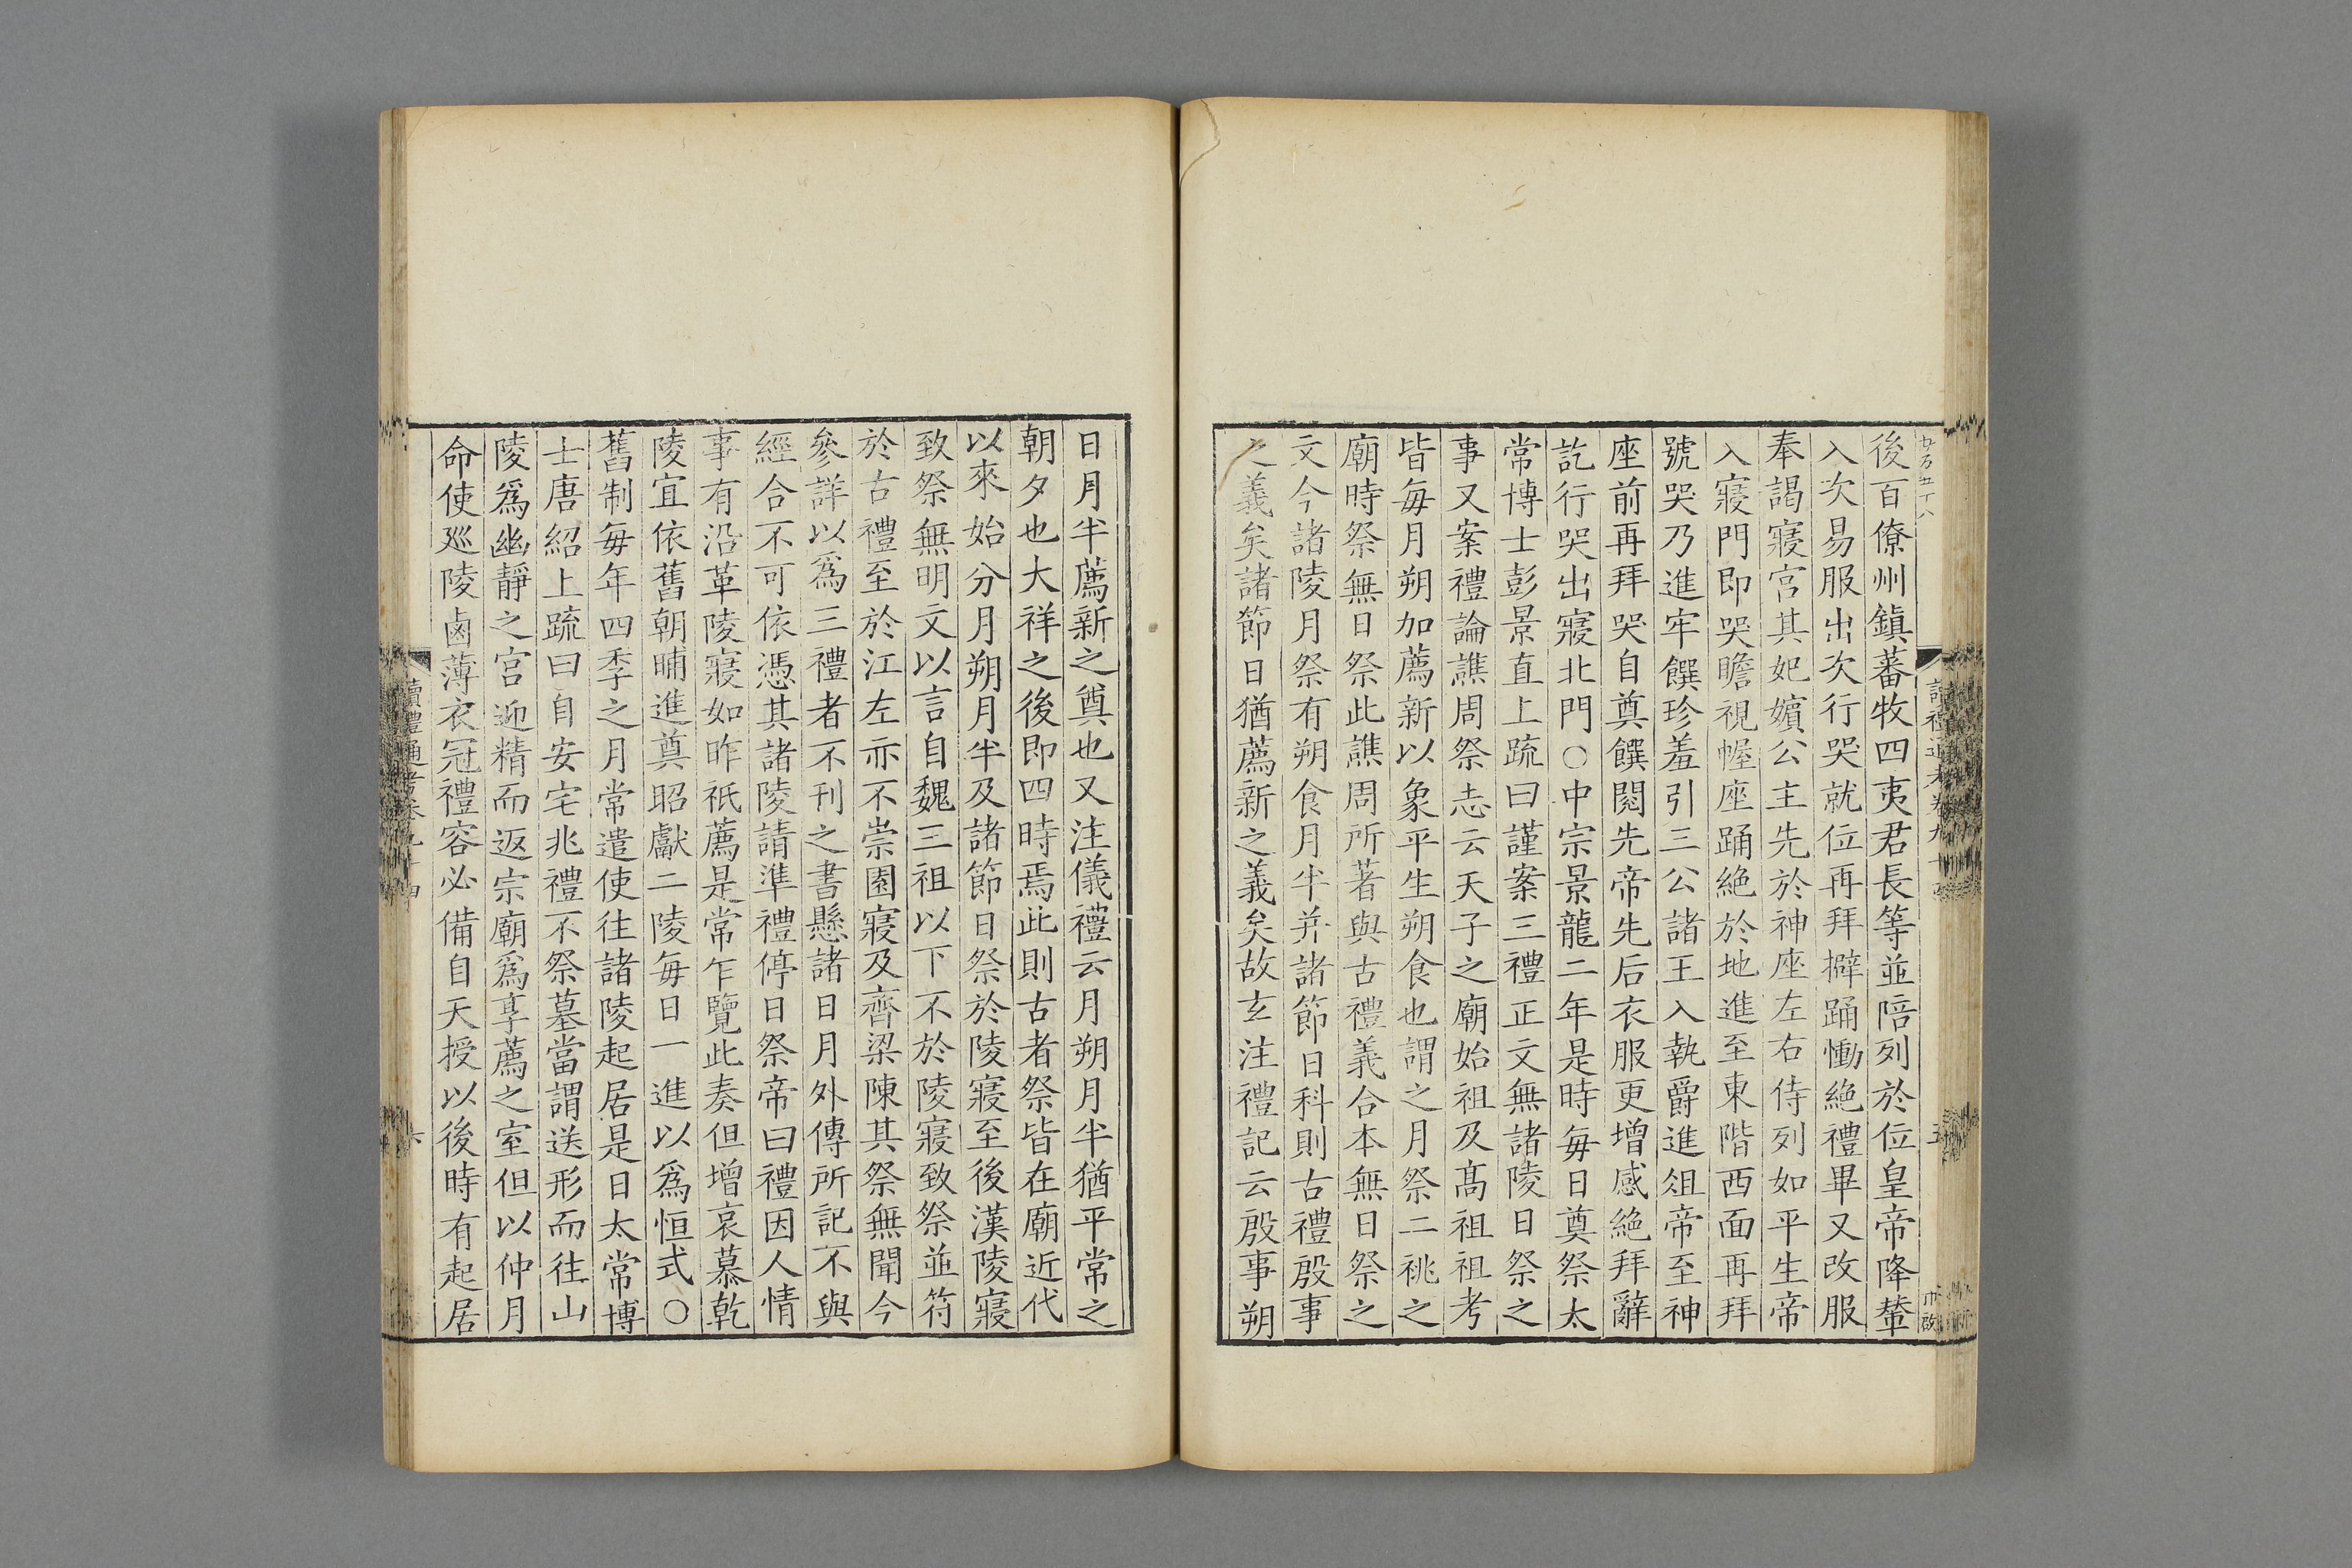 後百僚州鎮蕃牧四夷君長等並陪列於位皇帝降輦
入次易服出次行哭就位再拜擗踊慟絶禮畢又改服
奉謁寢宮其妃嬪公主先於神座左右侍列如平生帝
入寢門即哭瞻視幄座踊絶於地進至東階西面再拜
號哭乃進牢饌珍羞引三公諸王入執爵進俎帝至神
座前再拜哭自奠饌閱先帝先后衣服更增感絶拜辭
訖行哭出寢北門○中宗景龍二年是時每日奠祭太
常博士彭景直上疏曰謹案三禮正文無諸陵日祭之
事又案禮論譙周祭志云天子之廟始祖及高祖祖考
皆每月朔加薦新以象平生朔食也謂之月祭二祧之
廟時祭無日祭此譙周所著與古禮義合本無日祭之
文今諸陵月祭有朔食月半并諸節日科則古禮殷事
之義矣諸節日猶薦新之義矣故玄注禮記云殷事朔
日月半薦新之奠也又注儀禮云月朔月半猶平常之
朝夕也大祥之後即四時焉此則古者祭皆在廟近代
以來始分月朔月半及諸節日祭於陵寢至後漢陵寢
致祭無明文以言自魏三祖以下不於陵寢致祭並符
於古禮至於江左亦不崇園寢及齊梁陳其祭無聞今
參詳以為三禮者不刊之書懸諸日月外傳所記不與
經合不可依憑其諸陵請準禮停日祭帝曰禮因人情
事有沿革陵寢如昨祇薦是常乍覽此奏但增哀慕乾
陵宜依舊朝晡進奠昭獻二陵每日一進以爲恒式○
舊制每年四季之月常遣使往諸陵起居是日太常博
士唐紹上疏曰自安宅兆禮不祭墓當謂送形而往山
陵爲幽靜之宮迎精而返宗廟爲享薦之室但以仲月
命使巡陵鹵薄衣冠禮容必備自天授以後時有起居
讀禮通考卷九十四
六